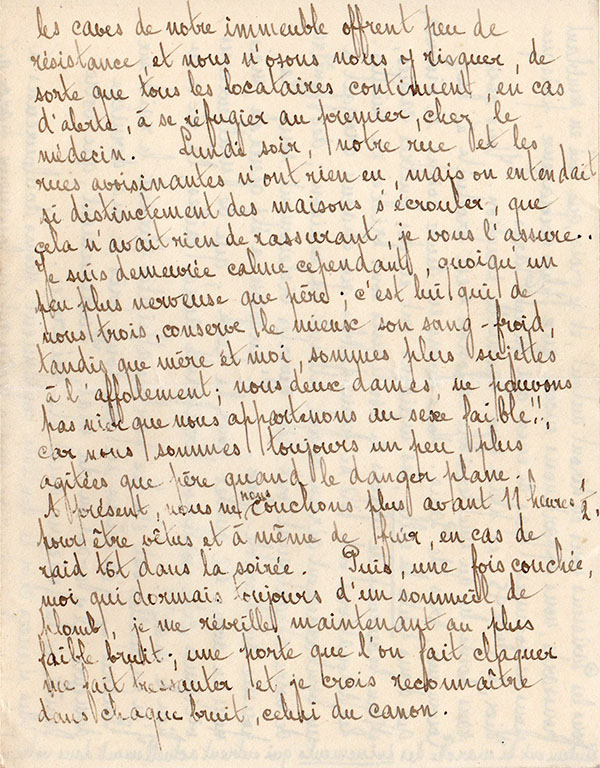 les caves de notre immeuble offrent peu de
résistance, et nous n'osons nous y risquer, de
sorte que tous les locataires continuent, en cas
d'alerte, à se réfugier au premier, chez le
médecin. Lundi soir, notre rue et les
rues avoisinantes n'ont rien eu, mais on entendait
si distinctement des maisons s'écrouler, que
cela n'avait rien de rassurant, je vous l'assure..
Je suis demeurée calme cependant, quoiqu'un
peu plus nerveuse que père; c'est lui qui de
nous trois, conserve le mieux son sang-froid,
tandis que mère et moi, sommes plus sujettes
à l'affolement; nous deux dames, ne pouvons
pas nier que nous appartenons au sexe faible!!,
car nous sommes toujours un peu plus
agitées que père quand le danger plane.
A présent, nous ne nous couchons plus avant 11 heures 1/2,
pour être vêtus et à même de fuir, en cas de
raid tôt dans la soirée. Puis, une fois couchée,
moi qui dormais toujours d'un sommeil de
plomb, je me réveille maintenant au plus
faible bruit; une porte que l'on fait claquer
me fait tressauter, et je crois reconnaître
dans chaque bruit, celui du canon.